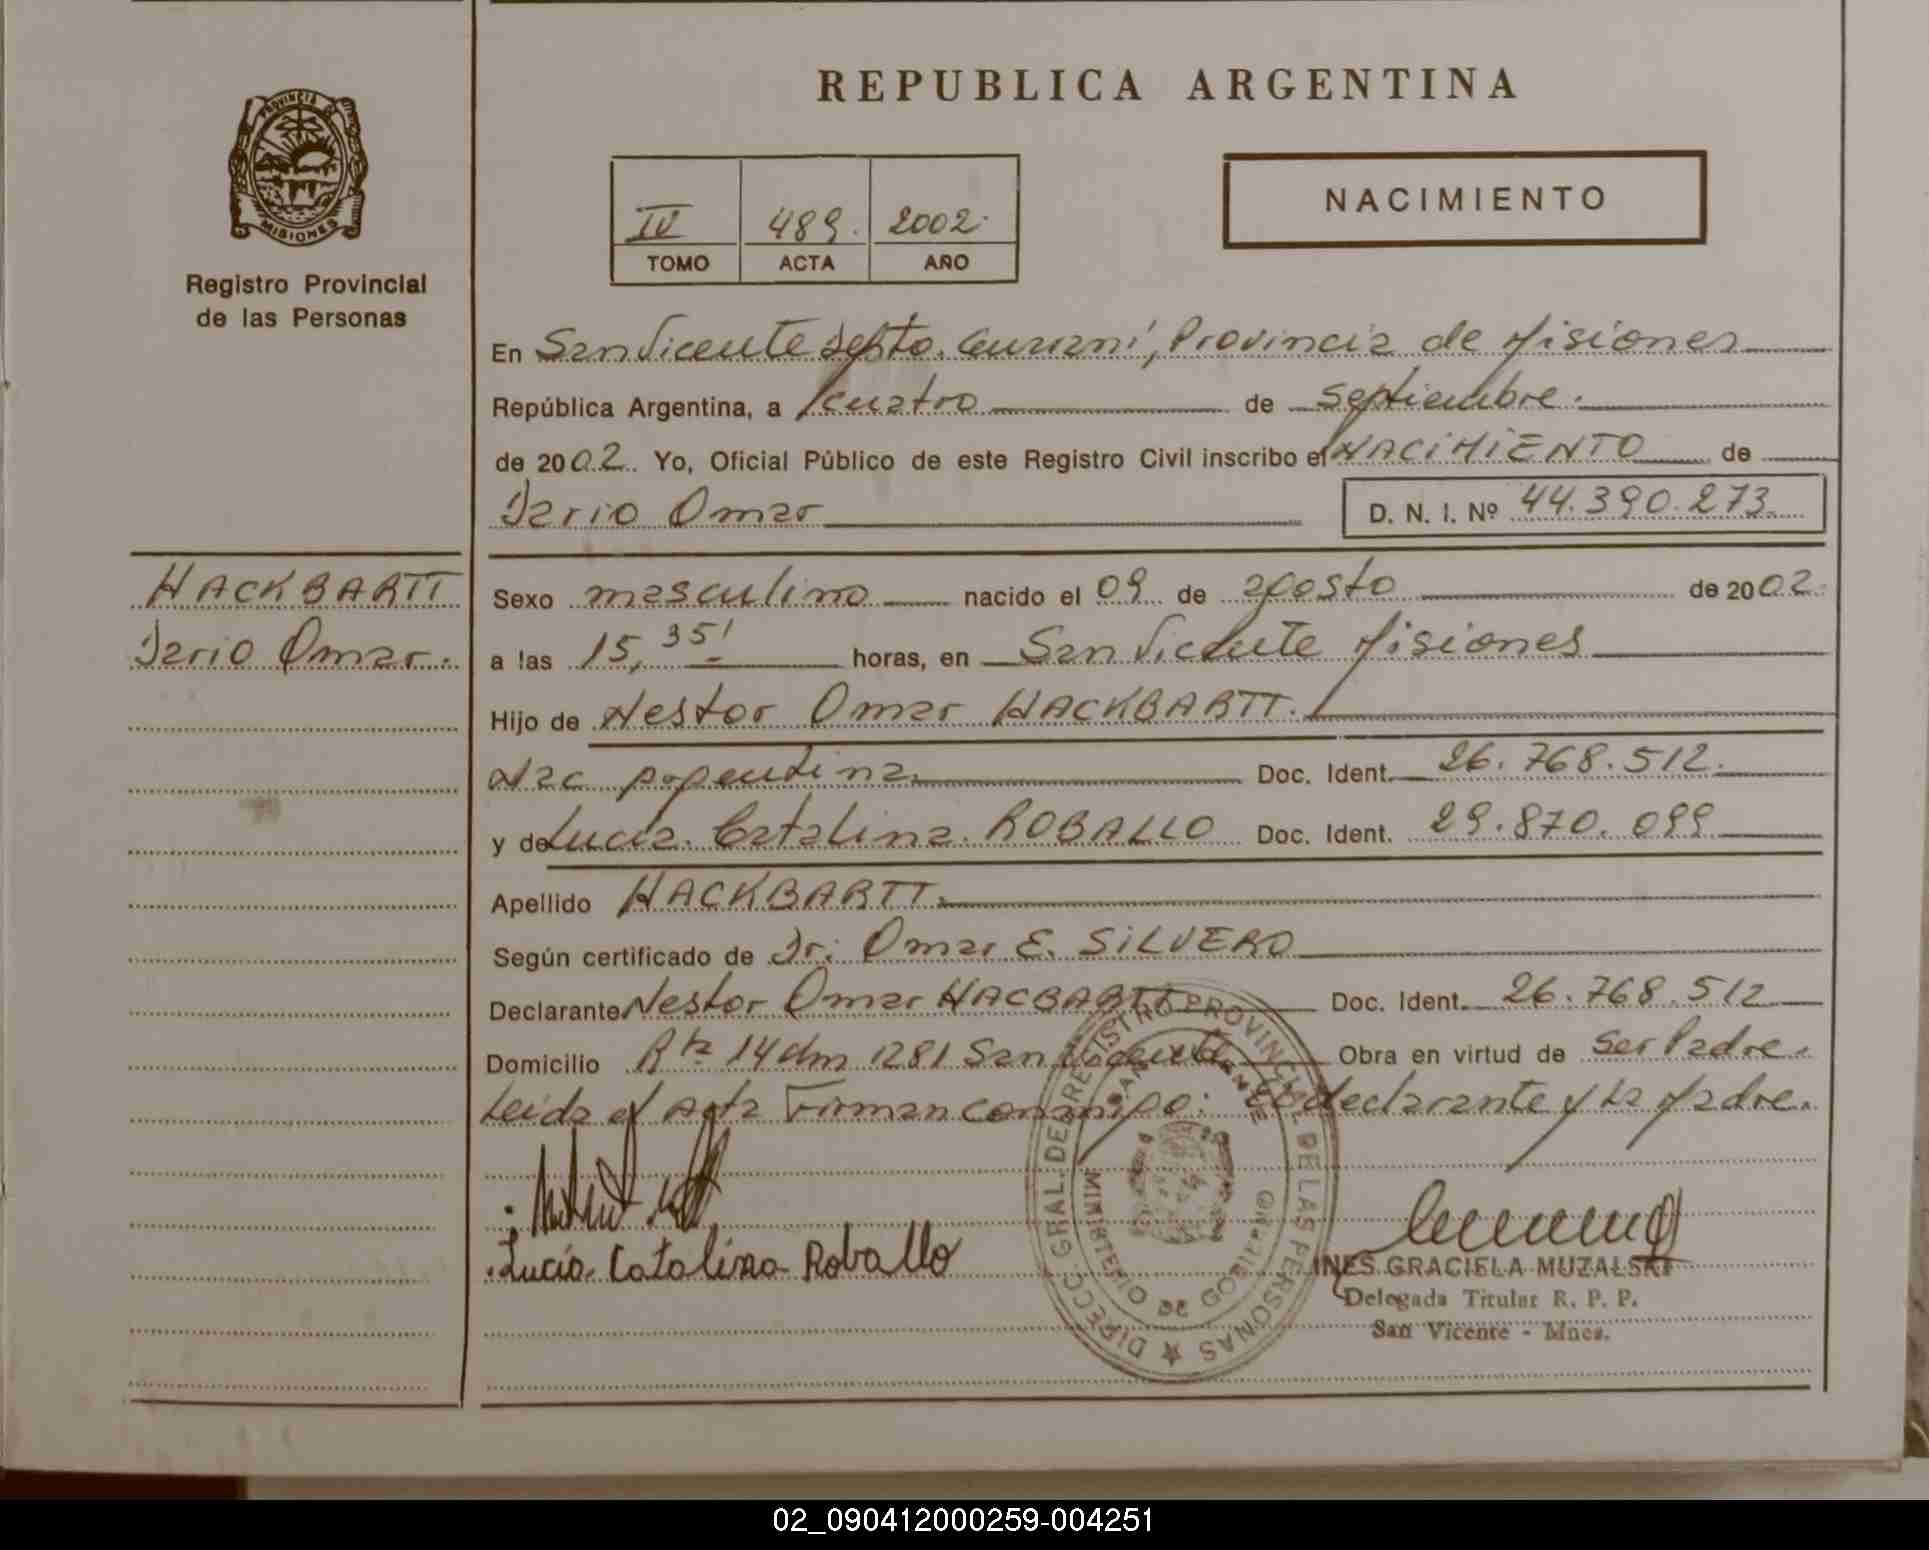 REPUBLICA ARGENTINA
PROVINCIA DE MISIONES
Registro Provincial
de las Personas
IV 489. 2002.
TOMO ACTA AÑO
NACIMIENTO
En San Vicente Depto. Guaraní, Provincia de Misiones
República Argentina, a cuatro de Septiembre.
de 2002. Yo, Oficial Público de este Registro Civil inscribo el NACIMIENTO de
Dario Omar D. N. I. Nº 44.390.273.
HACKBARTT
Dario Omar.
Sexo masculino nacido el 09 de agosto de 2002.
a las 15,35' horas, en San Vicente Misiones
Hijo de Nestor Omar HACKBARTT.
Nac argentina. Doc. Ident. 26.768.512.
y de Lucia Catalina ROBALLO Doc. Ident. 29.870.099
Apellido HACKBARTT.
Según certificado de Dr. Omar E. SILVERO
Declarante Nestor Omar HACBARTT Doc. Ident. 26.768.512
Domicilio Rta 14 Km 1281 San Vicente Obra en virtud de Ser Padre.
Leida el Acta Firman conmigo: El declarante y la Madre.
Lucía Catalina Roballo
DIRECC. GRAL. DE REGISTRO PROVINCIAL DE LAS PERSONAS
MINISTERIO DE GOBIERNO
SAN VICENTE
INES GRACIELA MUZALSKI
Delegada Titular R. P. P.
San Vicente - Mnes.
02_090412000259-004251